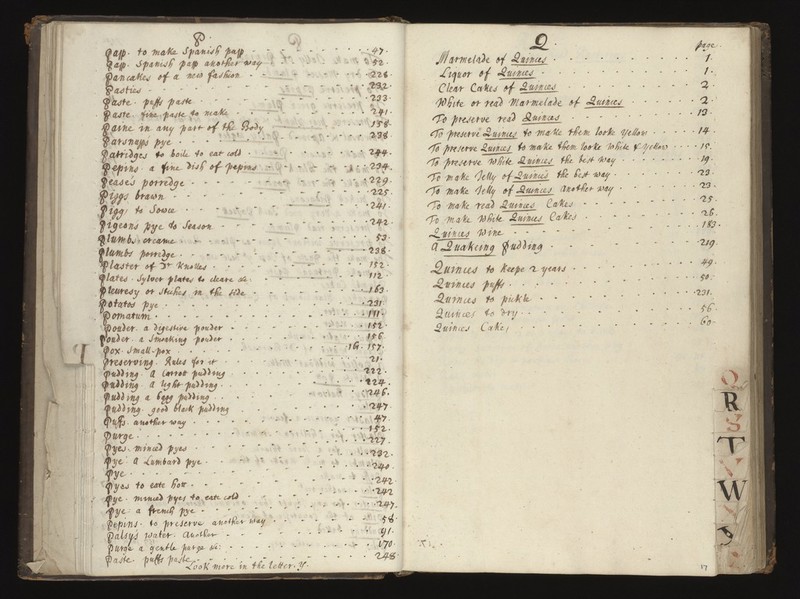 P.
Papp. to make Spanish papp 47.
Papp. Spanish papp another way 52.
Pancakes of a new fashion 228.
Pasties 232.
Paste. puffe paste 233.
Paste. fine paste to make 241.
Paine in any part of the Body 158.
Parsnipps pye 238.
Patridges to boile to eat cold 244.
Pepins. a fine dish of pepins 234.
Pease porredge 229.
Piggs brawn 225.
Piggs to Sowce 241.
Pigeons pye to Season 242.
Plumbs creame 53.
Plumbs porredge 238.
Plaster of Dr Knolles 122.
Plates. Sylver plates to cleane 112.
Pleuresy or Stiches in the Side 163.
Potatos pye 231.
Pomatum 111.
Pouder. a digestive pouder 152.
Pouder. a Smoaking pouder 156.
Pox. Small-pox 157.
Preserving. Rules for it 21.
Pudding. A Carrot pudding 222.
Pudding. a light pudding 224.
Pudding a hogg pudding 246.
Pudding. good black pudding 247.
Puffs. another way 47.
Purge 152.
Pyes. minced pyes 227.
Pye. A Lumbard pye 232.
Pye 240.
Pyes to eate hott 242.
Pye. minced pyes to eate cold 242.
Pye. a french pye 247.
Pepins. to preserve another way 58.
Palsys water. another 91.
Purge a gentle purge 170.
Paste. puffe paste 248.
Look more in the letter. Y.
P
Q
page
Marmelade of Quinces 1.
Liquor of Quinces 1.
Clear Cakes of Quinces 2.
White or read Marmelade of Quinces 2.
To preserve read Quinces 13.
To preserve Quinces to make them looke yellow 14.
To preserve Quinces to make them looke white & yellow 15.
To preserve white Quinces the best way 19.
To make Jelly of Quinces the best way 23.
To make Jelly of Quinces another way 23.
To make read Quinces Cakes 25.
To make white Quinces Cakes 26.
Quinces wine 183.
A Quakeing Pudding 219.
Quinces to keepe 2 years 49.
Quinces puffs 50.
Quinces to pickle 231.
Quinces to dry 56.
Quinces Cakes 60.
Q
R
S
T
W
17